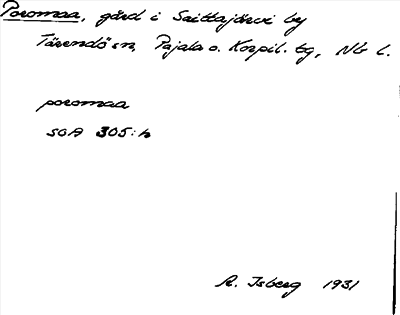 Poromaa, gård i Saittajärvi by
Tärendö sn, Pajala o. Korpil. tg, Nb l.
poromaa
SOA 305:h
A. Isberg 1931